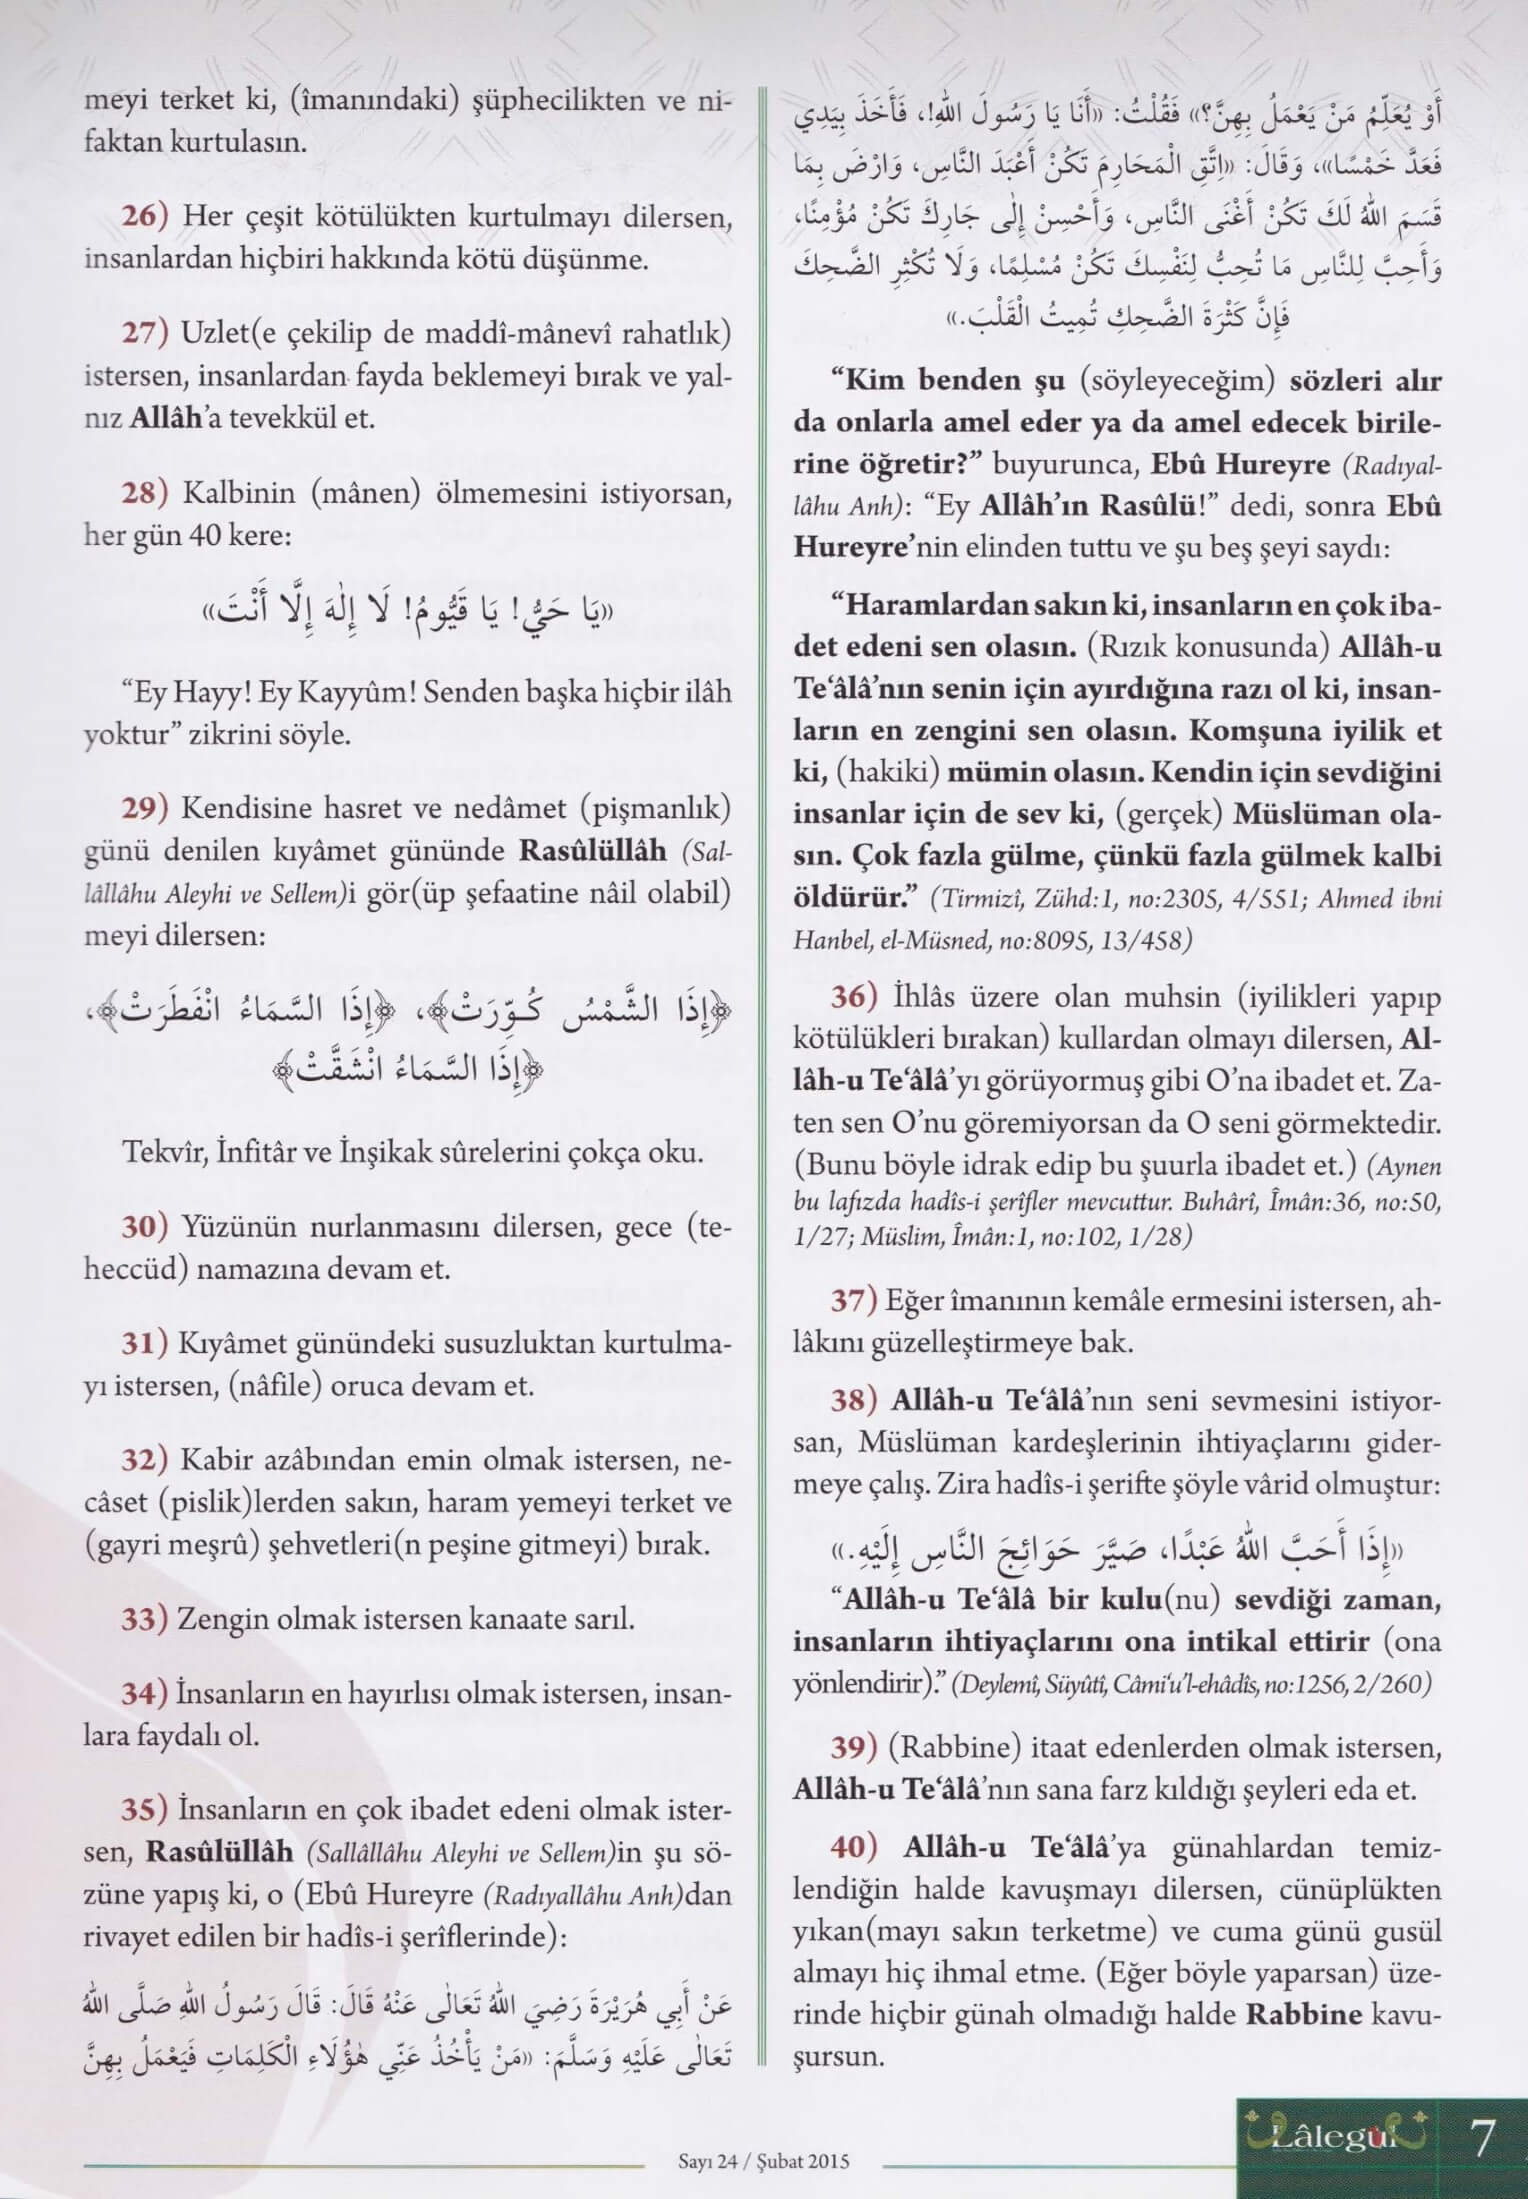 meyi terket ki, (îmanındaki) şüphecilikten ve ni-
faktan kurtulasın.
26) Her çeşit kötülükten kurtulmayı dilersen,
insanlardan hiçbiri hakkında kötü düşünme.
27) Uzlet(e çekilip de maddî-mânevî rahatlık)
istersen, insanlardan fayda beklemeyi bırak ve yal-
nız Allâh’a tevekkül et.
28) Kalbinin (mânen) ölmemesini istiyorsan,
her gün 40 kere:
«يَا حَيُّ! يَا قَيُّومُ! لَا إِلٰهَ إِلَّا أَنْتَ»
“Ey Hayy! Ey Kayyûm! Senden başka hiçbir ilâh
yoktur” zikrini söyle.
29) Kendisine hasret ve nedâmet (pişmanlık)
günü denilen kıyâmet gününde Rasûlüllâh (Sal-
lâllâhu Aleyhi ve Sellem)i gör(üp şefaatine nâil olabil)
meyi dilersen:
﴿إِذَا الشَّمْسُ كُوِّرَتْ﴾، ﴿إِذَا السَّمَاءُ انْفَطَرَتْ﴾،
﴿إِذَا السَّمَاءُ انْشَقَّتْ﴾
Tekvîr, İnfitâr ve İnşikak sûrelerini çokça oku.
30) Yüzünün nurlanmasını dilersen, gece (te-
heccüd) namazına devam et.
31) Kıyâmet günündeki susuzluktan kurtulma-
yı istersen, (nâfile) oruca devam et.
32) Kabir azâbından emin olmak istersen, ne-
câset (pislik)lerden sakın, haram yemeyi terket ve
(gayri meşrû) şehvetleri(n peşine gitmeyi) bırak.
33) Zengin olmak istersen kanaate sarıl.
34) İnsanların en hayırlısı olmak istersen, insan-
lara faydalı ol.
35) İnsanların en çok ibadet edeni olmak ister-
sen, Rasûlüllâh (Sallâllâhu Aleyhi ve Sellem)in şu sö-
züne yapış ki, o (Ebû Hureyre (Radıyallâhu Anh)dan
rivayet edilen bir hadîs-i şerîflerinde):
عَنْ أَبِي هُرَيْرَةَ رَضِيَ اللهُ تَعَالٰى عَنْهُ قَالَ: قَالَ رَسُولُ اللهِ صَلَّى اللهُ
تَعَالٰى عَلَيْهِ وَسَلَّمَ: «مَنْ يَأْخُذُ عَنِّي هٰؤُلَاءِ الْكَلِمَاتِ فَيَعْمَلُ بِهِنَّ
أَوْ يُعَلِّمُ مَنْ يَعْمَلُ بِهِنَّ؟» فَقُلْتُ: «أَنَا يَا رَسُولَ اللهِ!، فَأَخَذَ بِيَدِي
فَعَدَّ خَمْسًا»، وَقَالَ: «اِتَّقِ الْمَحَارِمَ تَكُنْ أَعْبَدَ النَّاسِ، وَارْضَ بِمَا
قَسَمَ اللهُ لَكَ تَكُنْ أَغْنَى النَّاسِ، وَأَحْسِنْ إِلٰى جَارِكَ تَكُنْ مُؤْمِنًا،
وَأَحِبَّ لِلنَّاسِ مَا تُحِبُّ لِنَفْسِكَ تَكُنْ مُسْلِمًا، وَلَا تُكْثِرِ الضَّحِكَ
فَإِنَّ كَثْرَةَ الضَّحِكِ تُمِيتُ الْقَلْبَ.»
“Kim benden şu (söyleyeceğim) sözleri alır
da onlarla amel eder ya da amel edecek birile-
rine öğretir?” buyurunca, Ebû Hureyre (Radıyal-
lâhu Anh): “Ey Allâh’ın Rasûlü!” dedi, sonra Ebû
Hureyre’nin elinden tuttu ve şu beş şeyi saydı:
“Haramlardan sakın ki, insanların en çok iba-
det edeni sen olasın. (Rızık konusunda) Allâh-u
Te‘âlâ’nın senin için ayırdığına razı ol ki, insan-
ların en zengini sen olasın. Komşuna iyilik et
ki, (hakiki) mümin olasın. Kendin için sevdiğini
insanlar için de sev ki, (gerçek) Müslüman ola-
sın. Çok fazla gülme, çünkü fazla gülmek kalbi
öldürür.” (Tirmizî, Zühd:1, no:2305, 4/551; Ahmed ibni
Hanbel, el-Müsned, no:8095, 13/458)
36) İhlâs üzere olan muhsin (iyilikleri yapıp
kötülükleri bırakan) kullardan olmayı dilersen, Al-
lâh-u Te‘âlâ’yı görüyormuş gibi O’na ibadet et. Za-
ten sen O’nu göremiyorsan da O seni görmektedir.
(Bunu böyle idrak edip bu şuurla ibadet et.) (Aynen
bu lafızda hadîs-i şerîfler mevcuttur. Buhârî, Îmân:36, no:50,
1/27; Müslim, Îmân:1, no:102, 1/28)
37) Eğer îmanının kemâle ermesini istersen, ah-
lâkını güzelleştirmeye bak.
38) Allâh-u Te‘âlâ’nın seni sevmesini istiyor-
san, Müslüman kardeşlerinin ihtiyaçlarını gider-
meye çalış. Zira hadîs-i şerifte şöyle vârid olmuştur:
«إِذَا أَحَبَّ اللهُ عَبْدًا، صَيَّرَ حَوَائِجَ النَّاسِ إِلَيْهِ.»
“Allâh-u Te‘âlâ bir kulu(nu) sevdiği zaman,
insanların ihtiyaçlarını ona intikal ettirir (ona
yönlendirir).” (Deylemî, Süyûtî, Câmi‘u’l-ehâdîs, no:1256, 2/260)
39) (Rabbine) itaat edenlerden olmak istersen,
Allâh-u Te‘âlâ’nın sana farz kıldığı şeyleri eda et.
40) Allâh-u Te‘âlâ’ya günahlardan temiz-
lendiğin halde kavuşmayı dilersen, cünüplükten
yıkan(mayı sakın terketme) ve cuma günü gusül
almayı hiç ihmal etme. (Eğer böyle yaparsan) üze-
rinde hiçbir günah olmadığı halde Rabbine kavu-
şursun.
Sayı 24 / Şubat 2015
Lâlegül
7